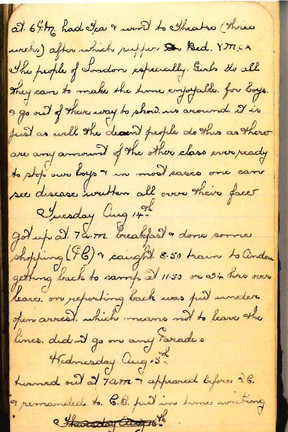 at 6 P.M. had Tea & went to Theatre (Three
weeks) after which supper & Bed. Y.M.C.A
The people of London especially Girls do all
they can to make the time enjoyable for boys.
& go out of there way to show us around it is
just as well the decent people do this as there
are any amount of the other class ever ready
to stop our boys & in most cases one can
see disease written all over their face
Tuesday Aug 14th
Got up at 7am breakfast & done some
shopping (P.C) & caught 8.50 train to Andover
getting back to camp at 11.50 or 24 hrs over
leave. on reporting back was put under
open arrest which means not to leave the
lines. did not go on any Parades
Wednesday Aug 15th
turned out at 7am & appeared before
& remanded to C.O. put in time writing
Thursday Aug 16th